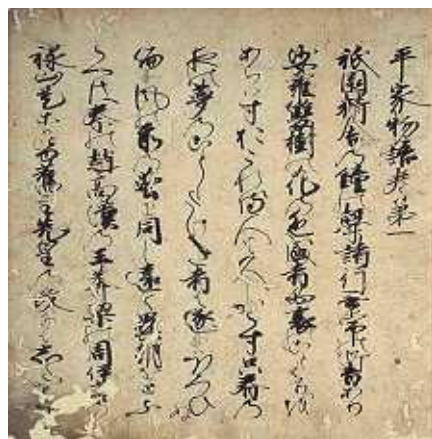 平家物語巻第一
祇園精舎の鐘の聲諸行無常の響あり
娑羅雙樹の花の色盛者必衰のことはりを
あらはすおこれる人も久しからす只春の
夜の夢のことしたけき者も遂にはほろひぬ
偏に風の前の塵に同し遠く異朝をとふ
らへは秦の趙高漢の王莽梁の周伊唐の
禄山是等は皆舊主先皇の政にもしたかはす